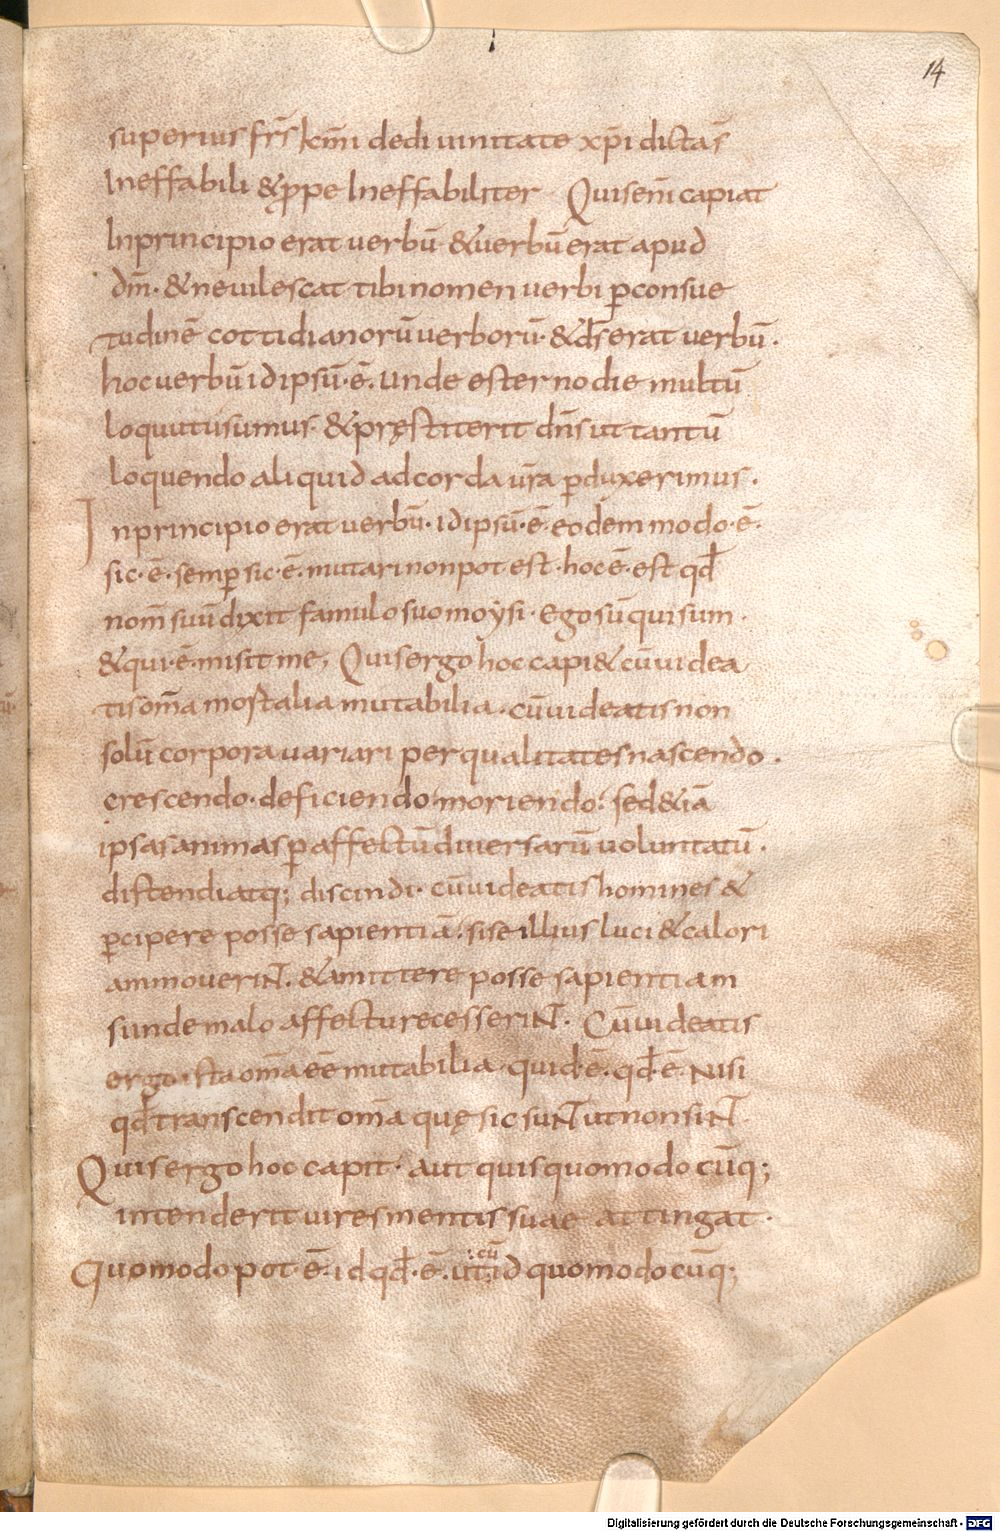 14
superius frs̄ km̄i de diuinitate xp̄i dictas̄
Ineffabili & ꝓpe Ineffabiliter Quis eni̅ capiat
In principio erat uerbū & uerbū erat apud
dm̄· & ne uilescat tibi nomen uerbi ꝑ consue
tudinē cottidianorū uerborū· & ds̄ erat uerbū·
hoc uerbū idipsū·ē· unde esterno die multū
loquutu sumus· & pręstiterit dn̄s ut tantū
loquendo aliquid ad corda ur̄a ꝑduxerimus·
In principio erat uerbū· idipsū·ē· eodem modo·ē·
sic·ē· semꝑ sic·ē· mutari non potest· hoc ē· est qd̄
nom̄ suū dixit famulo suo moẏsi· Ego sū qui sum·
& qui·ē· misit me, Quis ergo hoc capi& cū uidea
tis om̄a mortalia mutabilia· cū uideatis non
solū corpora uariari per qualitates nascendo·
crescendo· deficiendo moriendo· sed &iā
ipsas animas ꝑ affectū diuersarū uoluntatū·
distendi atq; discindi· cū uideatis homines &
ꝑcipere posse sapientiā· si se illius luci & calori
ammouerint· & amittere posse sapientiam
s unde malo affectu recesserint· Cū uideatis
ergo ista om̄a eē mutabilia· quid·ē· qd̄·ē· Nisi
qd̄ transcendit om̄a quę sic sunt ut non sint·
Quis ergo hoc capit· aut quis quomodo cūq;
intenderit uires mentis suae attingat·
Quomodo pot·ē· id qd̄·ē· ut cū id quomodo cūq;
Digitalisierung gefördert durch die Deutsche Forschungsgemeinschaft - DFG